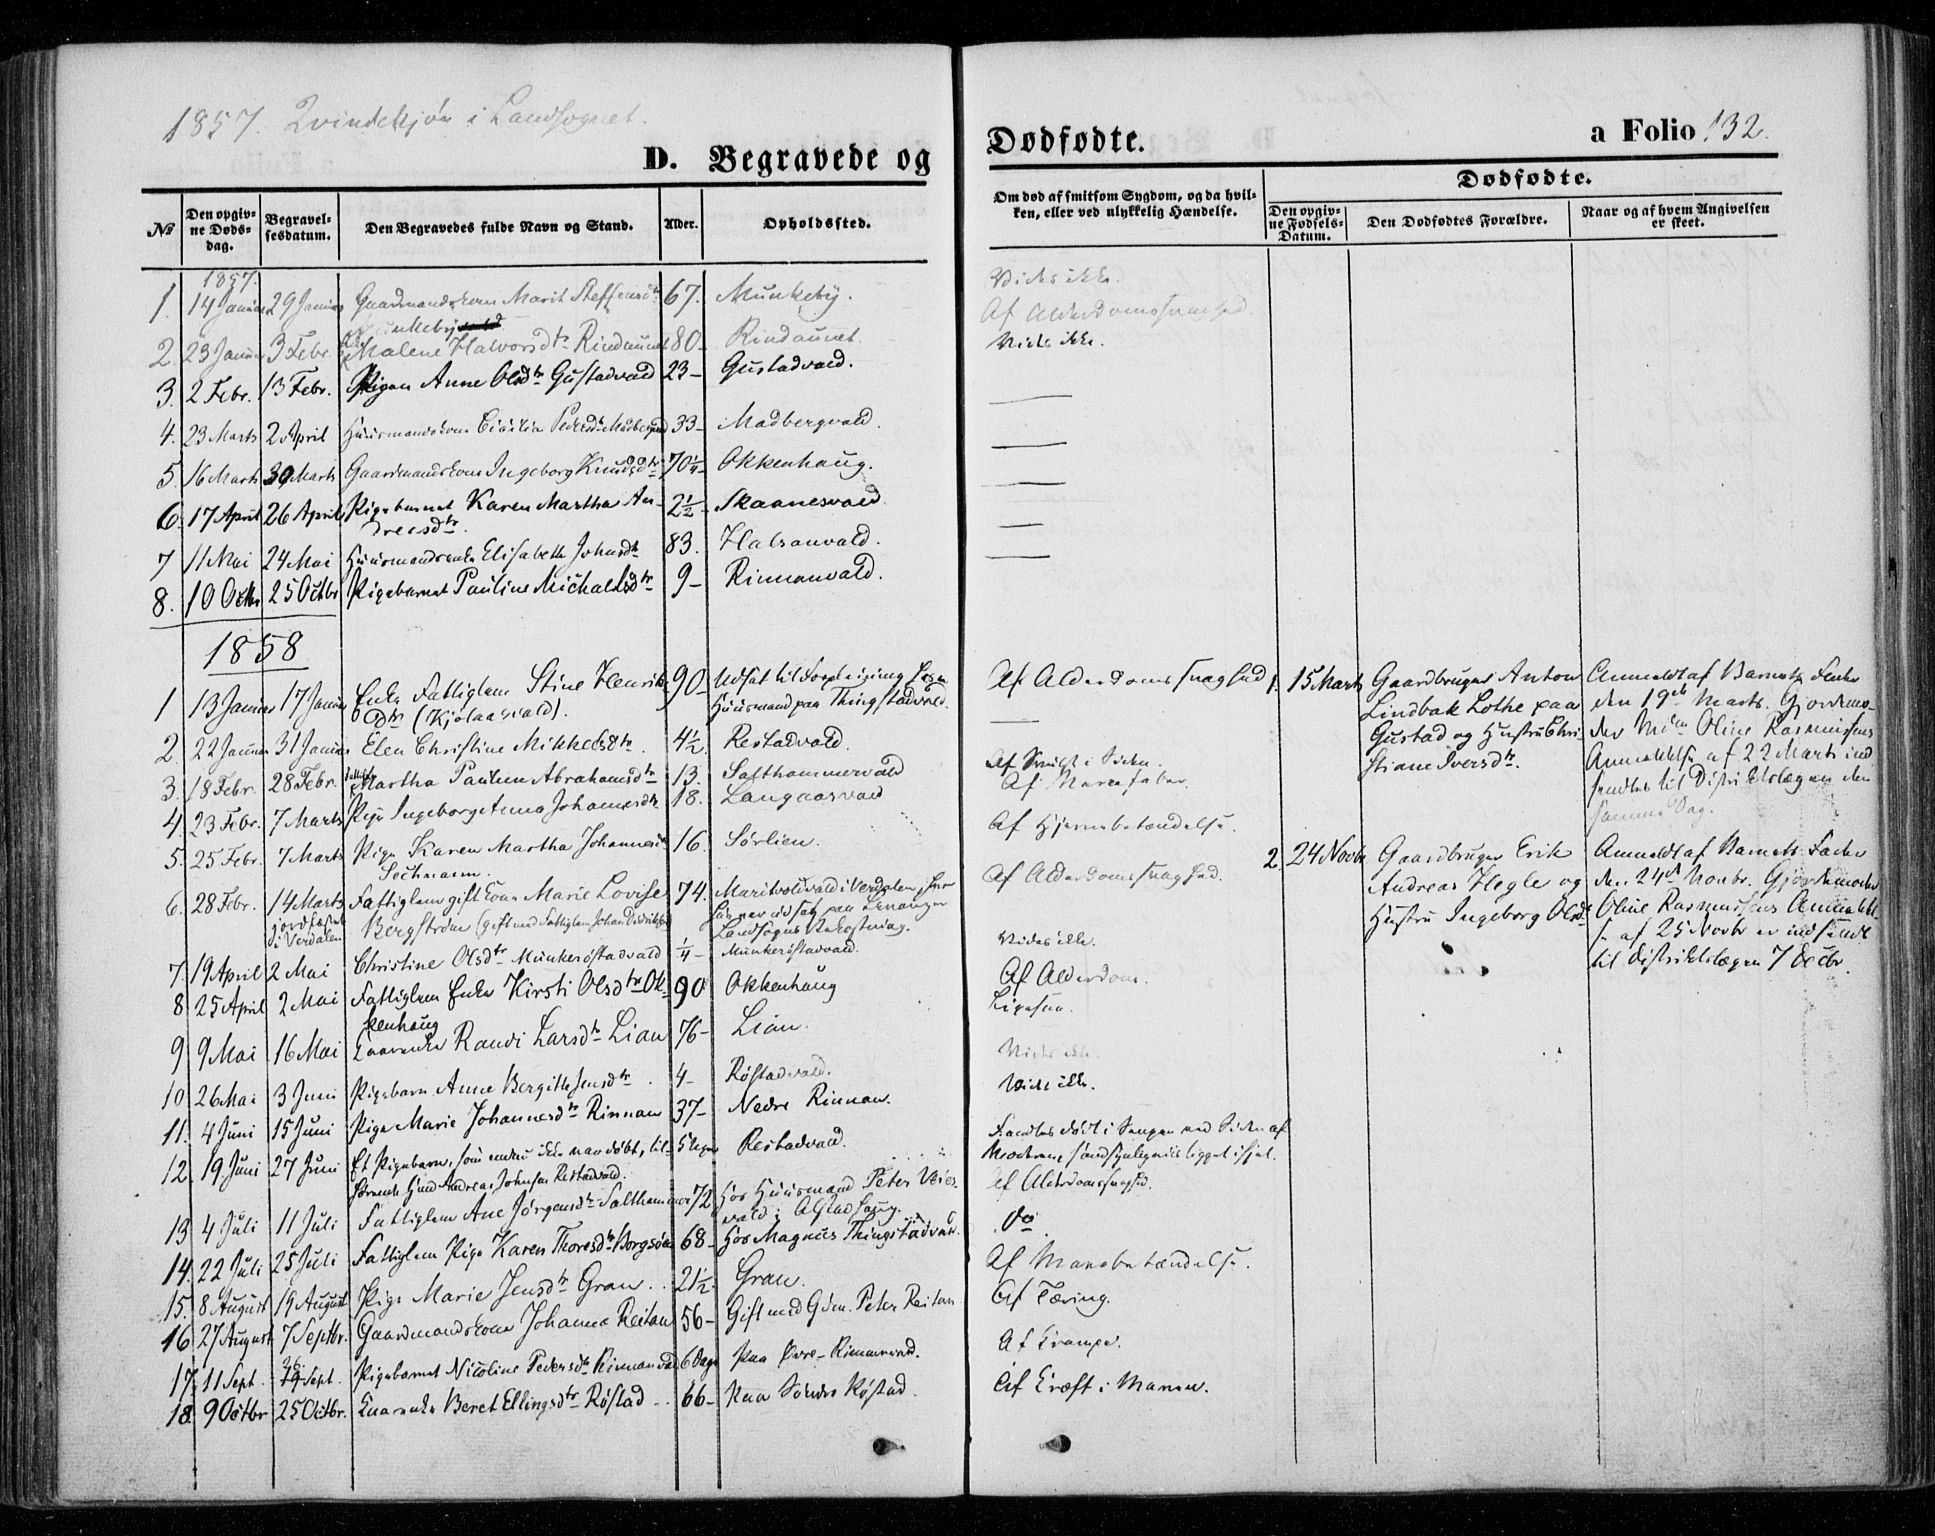 1857. Qvindekjøn i Landsognet.
D. Begravede og
Dødfødte.
a Folio 132.
No
Den opgivne Dødsdag.
Begravelsesdatum.
Den Begravedes fulde Navn og Stand.
Alder.
Opholdssted.
Om død af smitsom Sygdom, og da hvilken, eller ved ulykkelig Hændelse.
Dødfødte.
Den opgivne Fødsels-Datum.
Den Dødfødtes Forældre.
Naar og af hvem Angivelsen er skeet.
1857.
1. 14 Januar 29 Januar Gaardmandskone Marit Steffensdtr Munkeby 67. Munkeby. Vides ikke.
2. 23 Januar 3 Febr. Malene Halvorsdtr Rindaunet 80- Rindaunet. Af Alderdomssvaghed
3. 2 Febr. 13 Febr. Pigen Anne Olsdtr Gustadvald 23- Gustadvald. Vides ikke.
4. 23 Marts 2 April Huusmandskone Cicilia Pedersdtr 33- Madbergvald.
5. 16 Marts 30 Marts Gaardmandskone Ingeborg Knudsdtr 70 1/4 Okkenhaug.
6. 17 April 26 April Pigebarnet Karen Martha Andreasdtr. 2 1/2- Skaanesvald
7 11 Mai 24 Mai Huusmandsenke Elisabeth Johnsdtr 83. Halsanvald.
8. 10 Octbr 25 Octbr Pigebarnet Pauline Michaelsdtr 9- Rinnanvald.
1858
1 13 Januar 17 Januar Enke Fattiglem Stine Henriksdtr (Kjølaasvald). 90- Udsat til Forpleining hos Huusmand paa Thingstadvald. Af Alderdomssvaghed
2. 22 Januar 31 Januar Elen Christine Mikkelsdtr. 4 1/2 Restadvald.
3. 18 Febr. 28 Febr. Martha Pauline Abrahamsdtr 13. Salthammervald
4. 23 Febr. 7 Marts Pige Ingeborg Anna Johannesdtr 18. Langaasvald Af Nervefeber.
5. 25 Febr. 7 Marts Pige Karen Martha Johannesdtr 16. Sørlien. Af Hjernebetændelse.
6. 28 Febr. 14 Marts jordfæstet i Verdalen Fattiglem gift Kone Marie Lovise Bergstrøm (gift med Fattiglem Johan 74. i Verdalen, paa Levanger Landsogns Bekostning. Af Alderdomssvaghed.
7. 19 April 2 Mai Christine Olsdtr Munkerøstadvald 1/4- Munkerøstadvald. Vides ikke.
8 25 April 2 Mai Fattiglem Enke Kirsti Olsdtr Okkenhaug 90 Okkenhaug Af Alderdom.
9 9 Mai 16 Mai Randi Larsdtr Lian 76- Lian. Ligesaa.
10 26 Mai 3 Juni Pigebarn Anne Bergitte Jensdtr. 4- Røstadvald. Vides ikke.
11. 4 Juni 15 Juni Pige Marie Johannesdtr Rinnan 37- Nedre Rinnan. Vides ikke.
12. 19 Juni 27 Juni Et Pigebarn, som endnu ikke var døbt, tilhørende Huusmd Andreas Johnsen Restadvald. 5 Uger Restadvald. Fandtes dødt i Sengen ved Siden af Moderen, sandsynligviis ligget ihjel.
13. 4 Juli 11 Juli Fattiglem Ane Jørgensdtr Salthammer 72 Hos Huusmand Peter i Alstadhaug. Af Alderdomssvaghed.
14. 22 Juli 25 Juli Fattiglem Pige Karen Thoresdtr Borgsøe 68- Hos Magnus Thingstadvald. do.
15. 8 August 19 August Pige Marie Jensdtr Gran. 21 1/2. Gran. Af Mavebetændelse.
16 27 August 7 Septbr. Gaardmandskone Johanna Reitan 56- Gift med Gdm. Peter Reitan Af Tæring.
17. 11 Sept. Sept. Pigebarnet Nicoline Pedersdtr Rinnanvald 6 Dage Paa Øvre-Rinnanvald. Af Krampe.
18. 9 Octbr 25 Octbr. Enke Beret Ellingsdtr Røstad 66- Paa Søndre Røstad. Af Kræft i Maven.
1. 15 Marts Gaardbruger Anton Lindbak Lothe paa Gustad og Hustru Christiane Iversdtr.
Anmeldt af Barnets Fader den 19de Marts. Gjordemoder Mdm Oline Rasmussens Anmeldelse af 22 Marts indsendtes til Distriktslægen den samme Dag.
2. 24 Novbr Gaardbruger Erik Andreas Hegle og Hustru Ingeborg Olsdtr
Anmeldt af Barnets Fader den 24de Novbr. Gjordemoder Oline Rasmussens Anmeldelse af 25 Novbr er indsendt til Distriktslægen 7 Decbr.